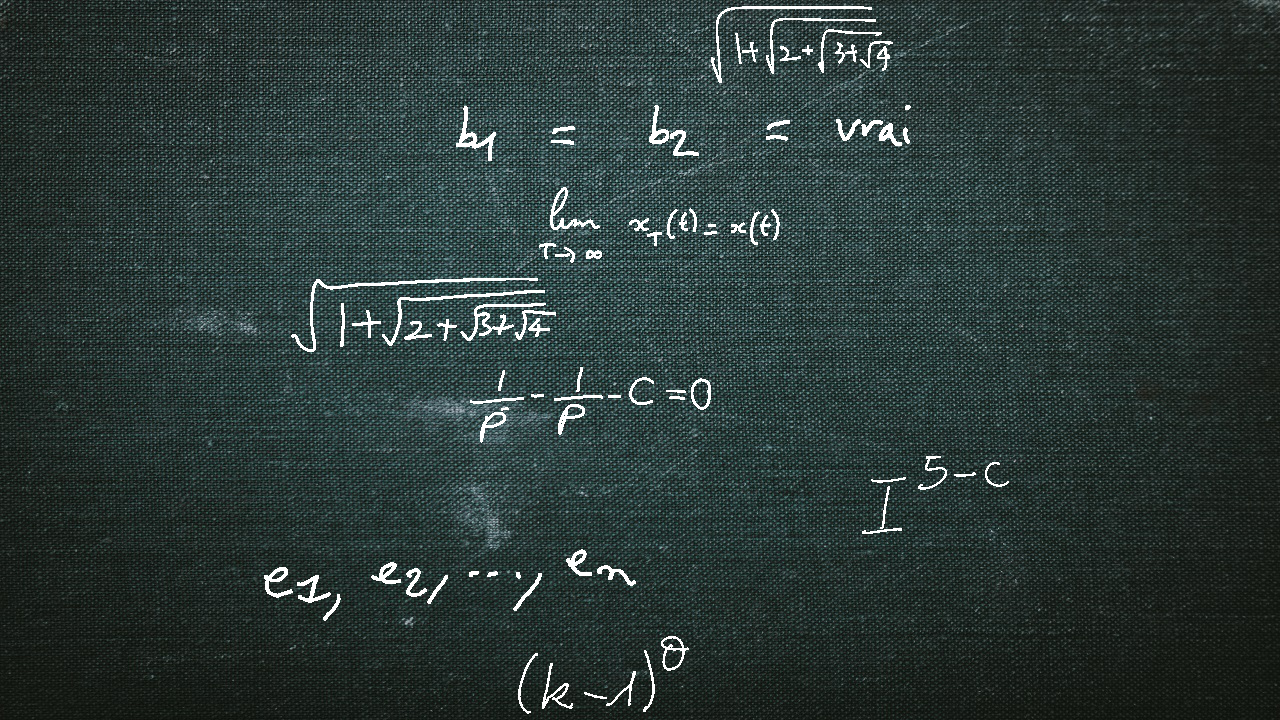 √(1+√(2+√(3+√4)))
b₁ = b₂ = vrai
lim_{T→∞} x_T(t) = x(t)
√(1+√(2+√(3+√4)))
1/p - 1/p - C = 0
I^{5-C}
e₁, e₂, ..., eₙ
(k-1)^θ